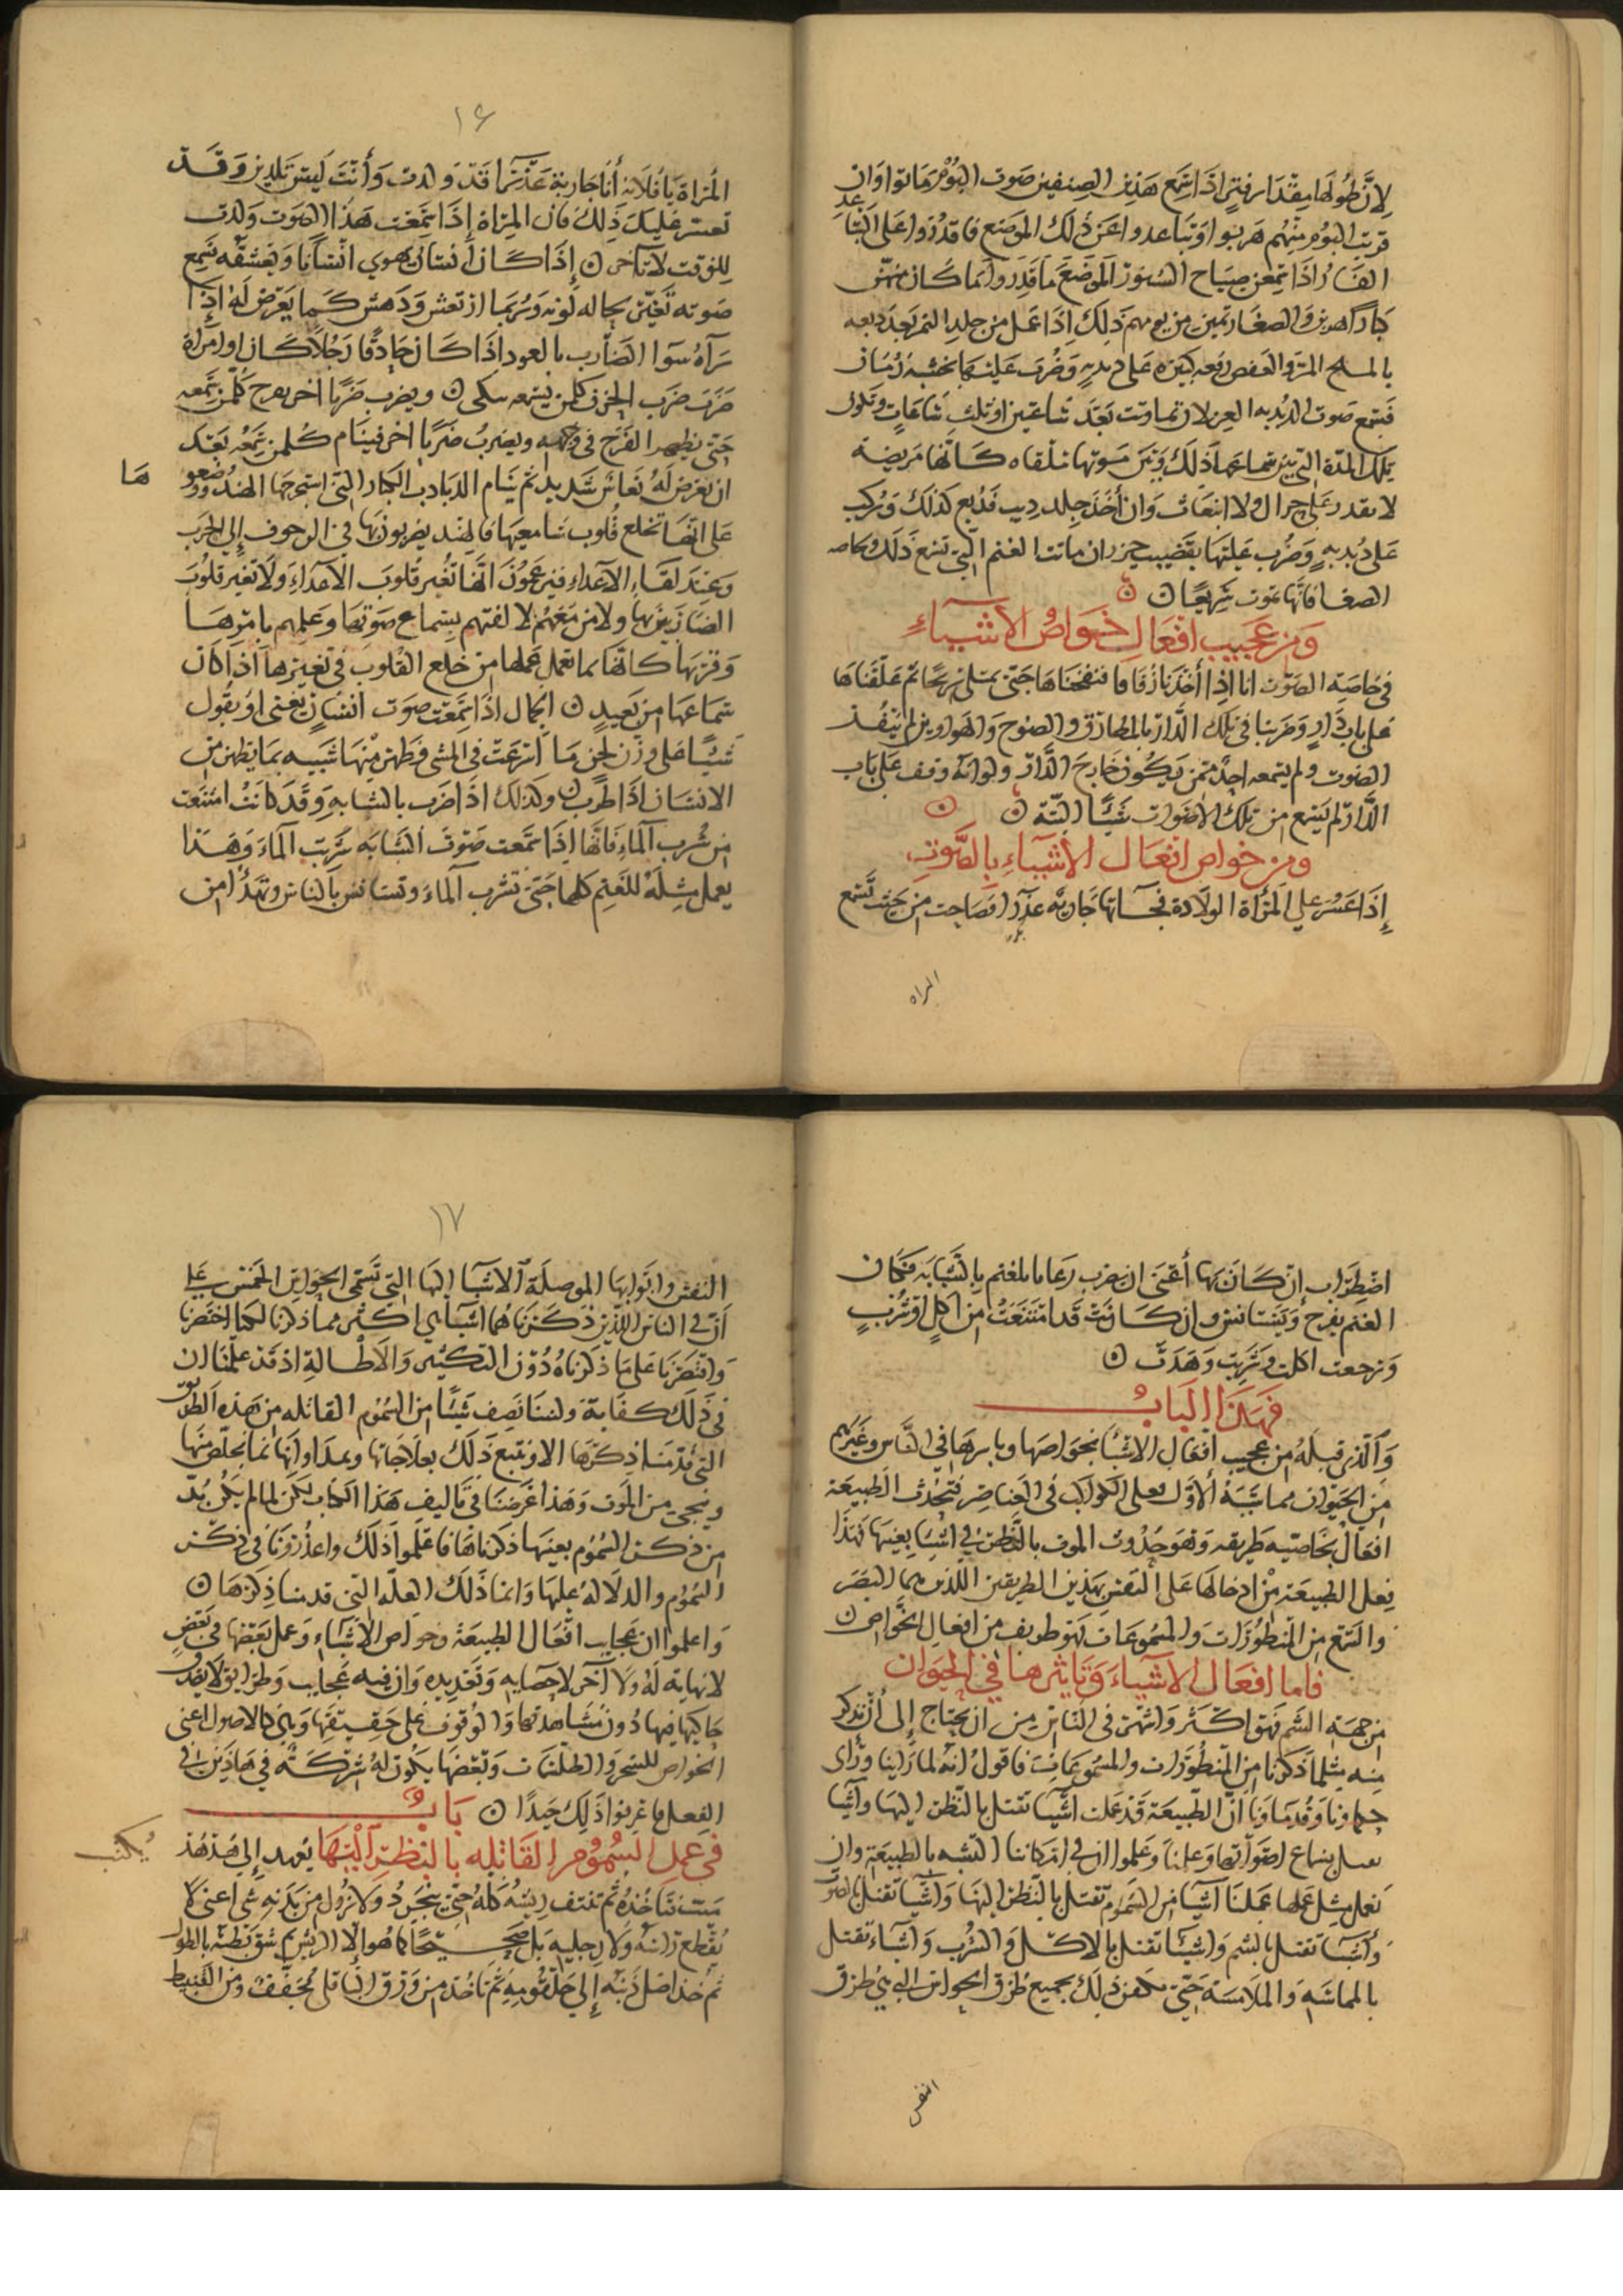 لأن طولها مقدار فتر اذا سمع هذين الصنفين صوت البوم ماتوا وان
قربت البوم منهم هربوا وتباعدوا عن ذلك الموضع ما قدروا على التباعد
الفار اذا سمعن صياح السنور الموضع ما قدروا كان منهن
كبارا هربن والصغار تمين من يومهم ذلك اذا عمل من جلد النمر بعد دبغه
بالملح المر والعفص على دبدبه وضرب عليها بخشبة رمان
فسمع صوت الدبدبه العين لا تماوتت بعد ساعتين او ثلث ساعات وتكون
تلك المدة التي بين سماعها ذلك وبين موتها ملقاه كانها مريضة
لا تقدر على حراك ولا انبعاث وان أخذ جلد ديب فدبغ كذلك وركب
على دبدبه وضرب عليها بقضيب خيزران ماتت الغنم التي تسمع ذلك وخاصه
الصغار فانها تموت سريعا
ومن عجيب افعال خواص الاشياء
في خاصية الصوت انا اذا أخذنا زقا ما فنفخناها حتى تمتلى ريحا ثم علقناها
على باب دار وضربنا في تلك الدار بالمطارق والصنوج والهواوين لم ينفذ
الصوت ولم يسمعه احد ممن يكون خارج الدار ولو انه وقف على باب
الدار لم يسمع من تلك الاصوات شيئا البتة
ومن خواص افعال الأشياء بالصوت
إذا عسر على المرأة الولادة فجاتها جارية عذرا فصاحت من حيث تسمع
المراه
١٦
المرأة يا فلانه أنا جارية عذرا قد ولدت وأنت ليس تلدين وقد
تعسر عليك ذلك فان المراة إذا سمعت هذا الصوت ولدت
للوقت لا تاخر إذا كان انسان يهوي انسانا ويعشقه فسمع
صوته تغير بحاله لونه وربما ارتعش ودهش كما يعرض له إذا
رآه سوا الضارب بالعود اذا كان حاذقا رجلا كان او امراة
ضرب ضرب الحزن كلمن يسمعه يبكي ويضرب ضربا اخر يفرح كلمن سمعه
حتى يظهر الفرح في وجهه ويضرب ضربا اخر فينام كلمن سمعه بعد
ان يعرض له نعاس شديد ثم ينام الدبادب الكبار التي استخرجها الهند ووضعو
ها
على انها تخلع قلوب سامعيها فالهند يضربونها في الزحوف إلى الحرب
وعند لقاء الاعداء فيزعمون انها تغير قلوب الاعداء ولا تغير قلوب
الضاربين بها ولا من معهم لالفتهم بسماع صوتها وعلمهم بامرها
وقربها كانها انما تعمل عملها من خلع القلوب في تغيرها اذا كان
سماعها من بعيد الجمال اذا سمعت صوت انسان يغني او يقول
شيئا على وزن لحن ما اسرعت في المشي وظهر منها شبيه بما يظهر من
الانسان اذا طرب وكذلك اذا ضرب بالشبابه وقد كانت امتنعت
من شرب الماء فانها إذا سمعت صوت الشبابه شربت الماء وهذا
يعمل مثله للغنم كلها حتى تشرب الماء وتستانس بالناس وتهدأ من
اضطراب إن كان بها أعني ان ضرب رعاتها للغنم بالشبابه فكان
الغنم يفرح ويستانس وان كانت قد امتنعت من اكل او شرب
رجعت اكلت وشربت وهدت
فهذا الباب
والذي قبله من عجيب افعال الاشيا بخواصها وتاثيرها في الناس وغيرهم
من الحيوان مما سببه الأول فعل الكواكب في العناصر فتحدث الطبيعة
افعال بخاصيه طريفه وهو حدوث الموت بالنظر في اشيا بعينها فهذا
فعل الطبيعة من ادخالها على النفس بهذين الطريقين اللذين هما البصر
والسمع من المنظورات والمسموعات فهو طريف من افعال الخواص
فاما افعال الاشياء وتاثيرها في الحيوان
من جهة الشم فهو اكثر واشهر في الناس من ان يحتاج إلى أن نذكر
منه مثلما ذكرنا من المنظورات والمسموعات فاقول انه لما راينا وراى
حكماونا وقدماونا ان الطبيعة قد عملت اشيا تقتل بالنظر اليها واشيا
بسماع اصواتها وعلمنا وعلموا ان في امكاننا التشبه بالطبيعة وان
نعمل مثل عملها عملنا اشيا من السموم تقتل بالنظر اليها واشيا تقتل بالصوت
وأشيا تقتل بالشم واشيا تقتل بالاكل والشرب واشياء تقتل
بالمماسه والملامسة حتى يكون ذلك بجميع طرق الحواس التي هي طرق
النفس
١٧
النفس وابوابها الموصلة الاشيا اليها التي تسمى الحواس الخمس على
أن في الناس اللذين ذكرناهما اشيا هي اكثر مما ذكرنا لكنا اختصرنا
واقتصرنا على ما ذكرناه دون التكثير والاطالة اذ قد علمنا ان
في ذلك كفاية ولسنا نصف شيئا من السموم القاتله من هذه الطرق
التي قدمنا ذكرها الا ونتبع ذلك بعلاجاتها وبمداواتها بما يخلص منها
وينجي من الموت وهذا غرضنا في تاليف هذا الكتاب لكن لما لم يكن بد
من ذكر السموم بعينها ذكرناها فاعلموا ذلك واعذرونا في ذكر
السموم والدلالة عليها وانما ذلك للعله التي قدمنا ذكرها
واعلموا ان عجايب افعال الطبيعة وخواص الاشياء وعمل بعضها في بعض
لا نهاية له ولا اخر لاحصايه وتعديده وان فيه عجايب وطرايق لا يقدر
حاكيها فيها دون مشاهدتها والوقوف على حقيقتها وهي كالاصول اعني
الخواص للسحر والطلسمات وبعضها يكون له شركة في هاذين في
الفعل فاعرفوا ذلك جيدا باب
في عمل السموم القاتله بالنظر اليها يعمد إلى هدهد
يكتب
ميت فتاخذه ثم تنتف ريشه كله حتى يتجرد ولا تزول من بدنه شي اعني لا
تقطع راسه ولا رجليه بل صحيحا كما هو الا الريش ثم شق بطنه بالطول
ثم خذ اصل ذنبه إلى حلقومه ثم تاخذ من ورق الباقلى مجفف ومن القنبيط